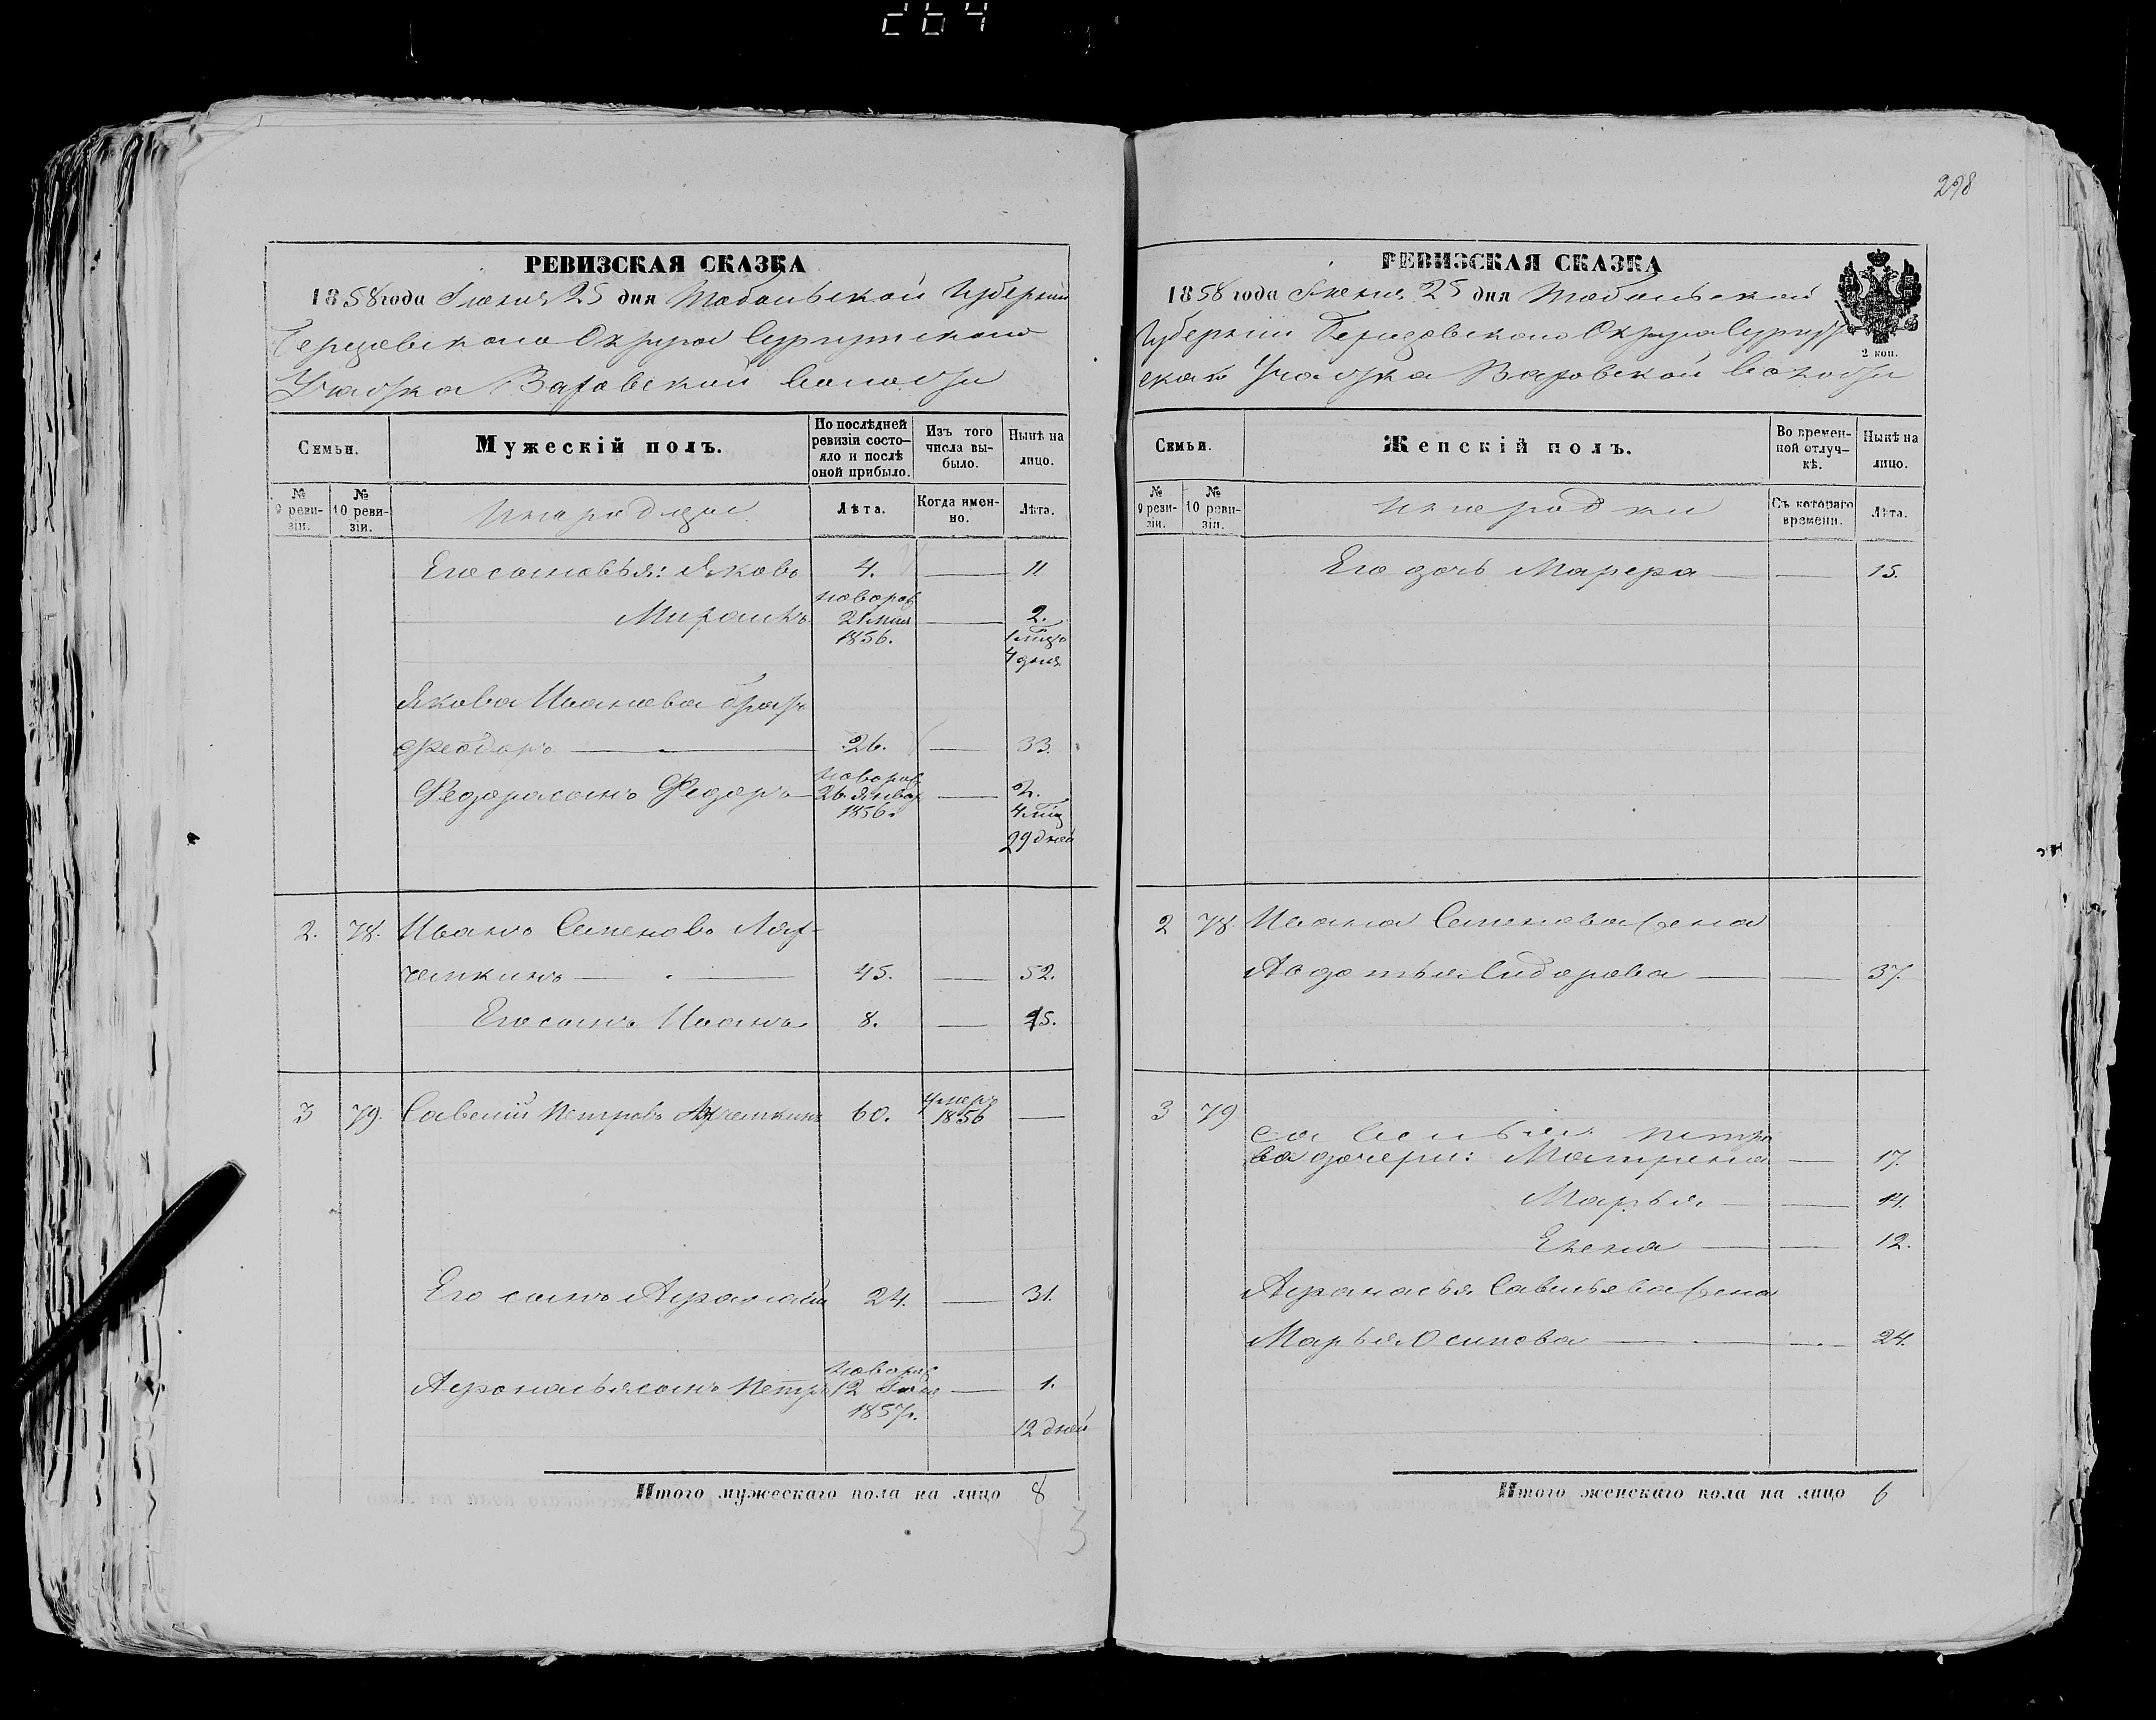 264
РЕВИЗСКАЯ СКАЗКА
1858 года Іюня 25 дня Тобольской Губерніи
Березовскаго Округа Сургутскаго
Участка Ваховской волости
Семьи.
Мужескій полъ.
По послѣдней ревизіи состояло и послѣ оной прибыло.
Изъ того числа выбыло.
Нынѣ на лицо.
№ 9 ревизіи.
№ 10 ревизіи.
Инородцы
Лѣта.
Когда именно.
Лѣта.
Его сыновья: Яковъ 4. — 11
Миронъ 21 мая 1856. — 2.
4 дня
Якова Иванова братъ
Феодоръ — 26. — 33.
Федора сынъ Федоръ — 26 январ 1856. — 2.
29 дней
2. 78. Иванъ Семеновъ
45. — 52.
Его сынъ Иванъ 8. — 15.
3 79. Савелій Петровъ 60. умеръ 1856 —
Его сынъ Афанасій 24. — 31.
Афанасья сынъ Петръ 12 1857г. — 1.
12 дней
Итого мужескаго пола на лицо 8
3
298
РЕВИЗСКАЯ СКАЗКА
1858 года Іюня 25 дня Тобольской
Губерніи Березовскаго Округа Сургут
скаго Участка Ваховской волости
2 коп.
Семьи.
Женскій полъ.
Во временной отлучкѣ.
Нынѣ на лицо.
№ 9 ревизіи.
№ 10 ревизіи.
Инородки
Съ котораго времени.
Лѣта.
Его дочь — — 15.
2 78. Ивана Семенова жена
Авдотья Сидорова — — 37.
3 79
Савелья Петро
ва дочери: Матрена — 17.
Марья — — 14.
Елена — — 12.
Афанасья Савельева жена
Марья Осипова — — 24.
Итого женскаго пола на лицо 6